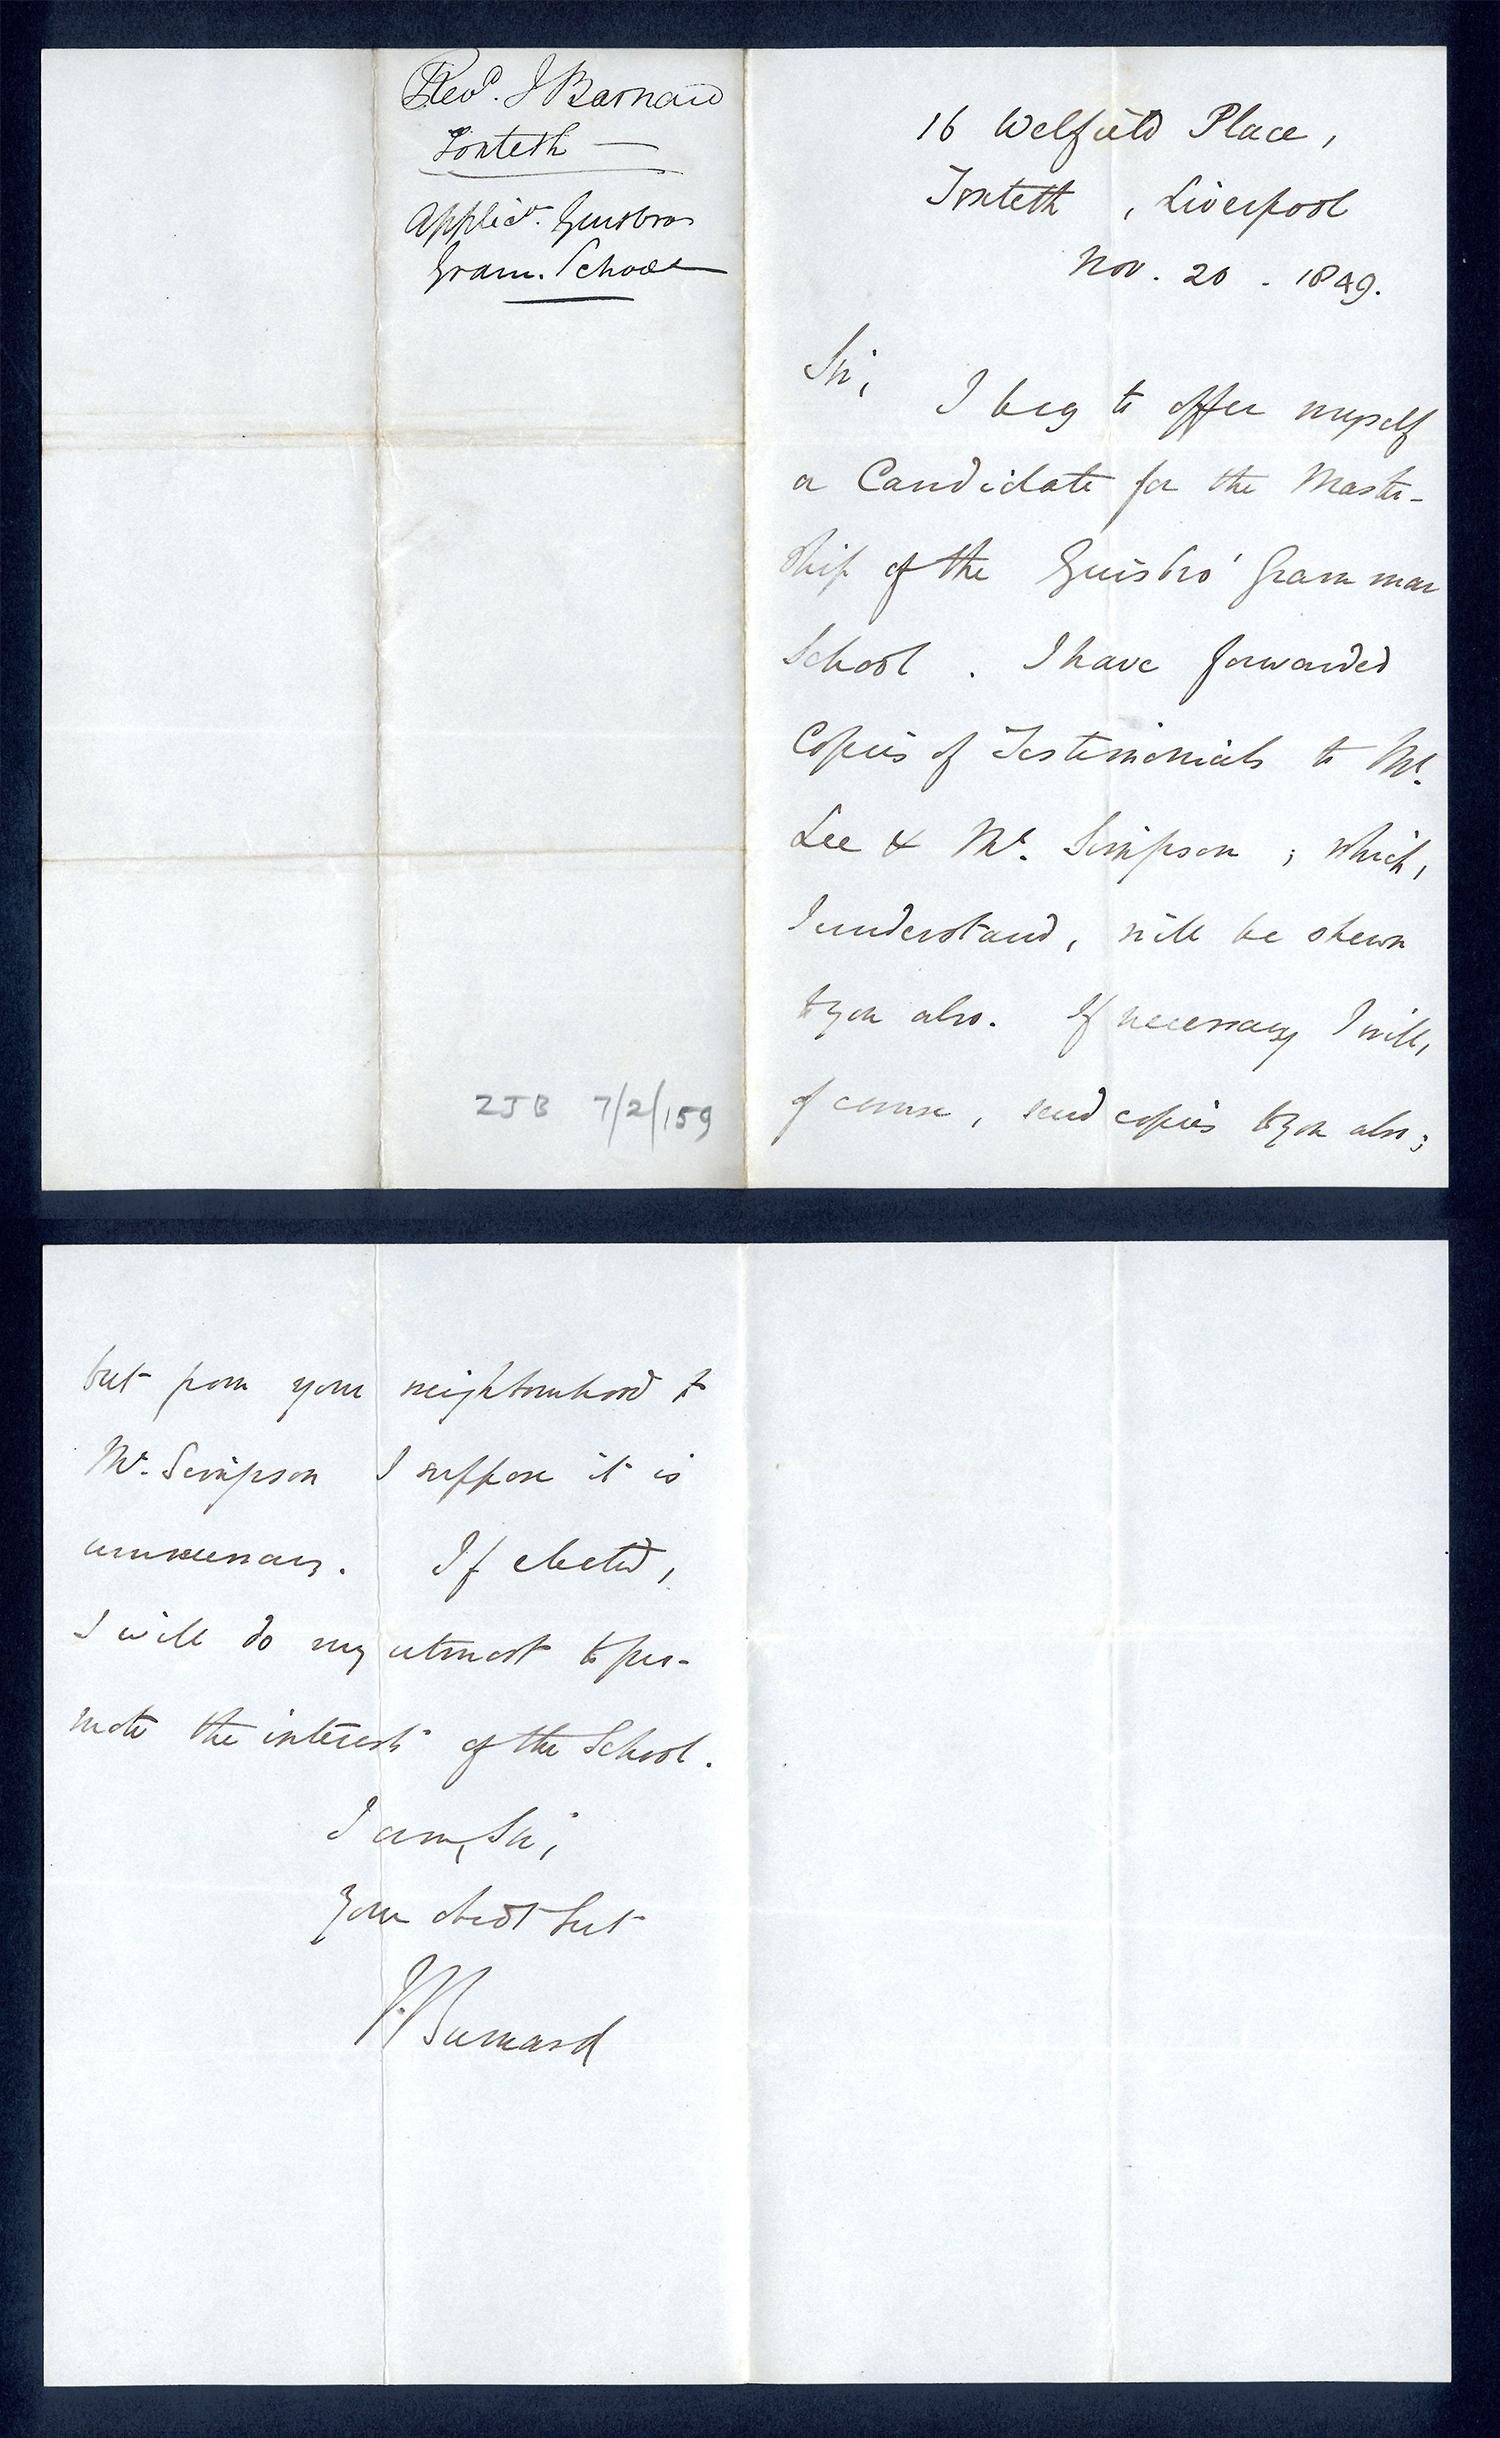 Revd. J Barnard
Toxteth —
Applicn. Guisbro
Gram. School
ZJB 7/2/159
16 Welfield Place,
Toxteth, Liverpool
Nov. 20. 1849.
Sir,
I beg to offer myself
a Candidate for the Master-
ship of the Guisbro' Grammar
School. I have forwarded
Copies of Testimonials to Mr.
Lee & Mr. Simpson; which,
I understand, will be shewn
to you also. If necessary I will,
of course, send copies to you also;
but from your neighbourhood to
Mr. Simpson I suppose it is
unnecessary. If elected,
I will do my utmost to pro-
mote the interests of the School.
I am, Sir,
Your obedt Sert
J. Barnard